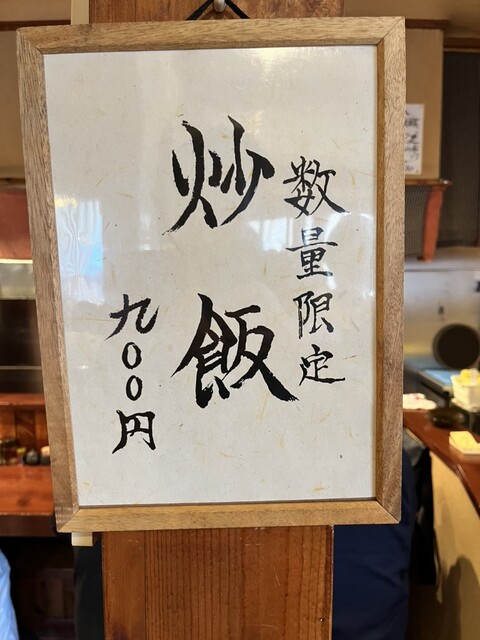 数量限定
炒飯
九〇〇円